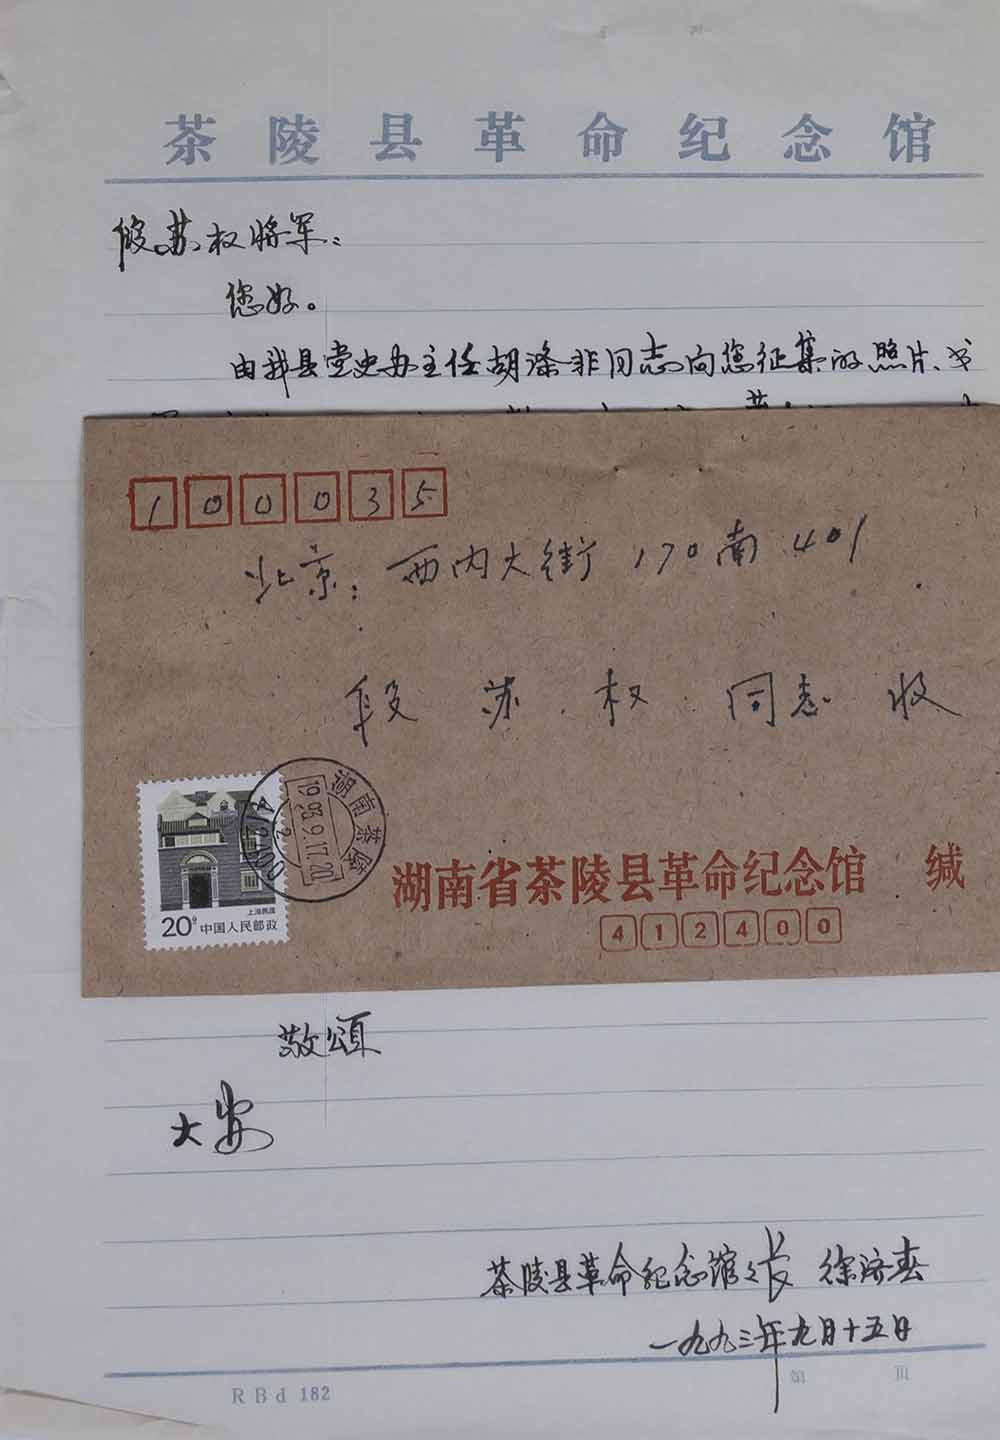 茶陵县革命纪念馆
段苏权将军：
您好。
由我县党史办主任胡涤非同志向您征集的照片、书
100035
北京：西内大街170南401
段苏权同志收
湖南茶陵
1993.9.17.20
上海民居
20分 中国人民邮政
湖南省茶陵县革命纪念馆 缄
412400
敬颂
大安
茶陵县革命纪念馆馆长 徐济春
一九九三年九月十五日
RBd 182
第 页